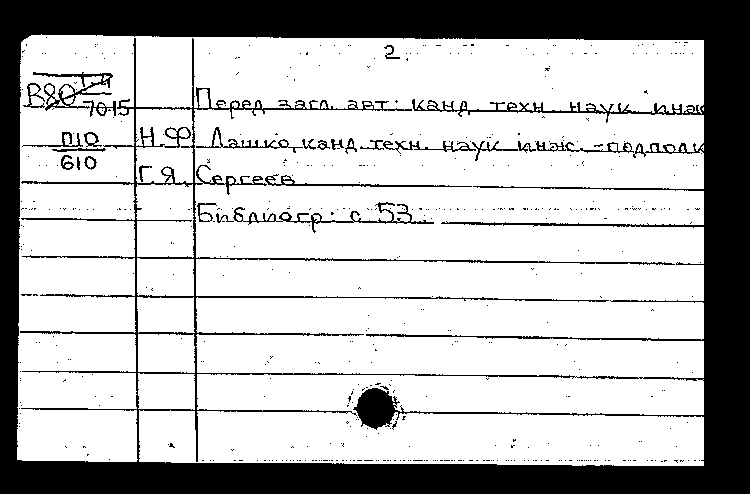 2.
В80
70-15
Перед загл. авт.: канд. техн. наук инж
П10
610
Н.Ф. Лашко, канд. техн. наук инж.-подполк
Г.Я. Сергеев
Библиогр.: с. 53.